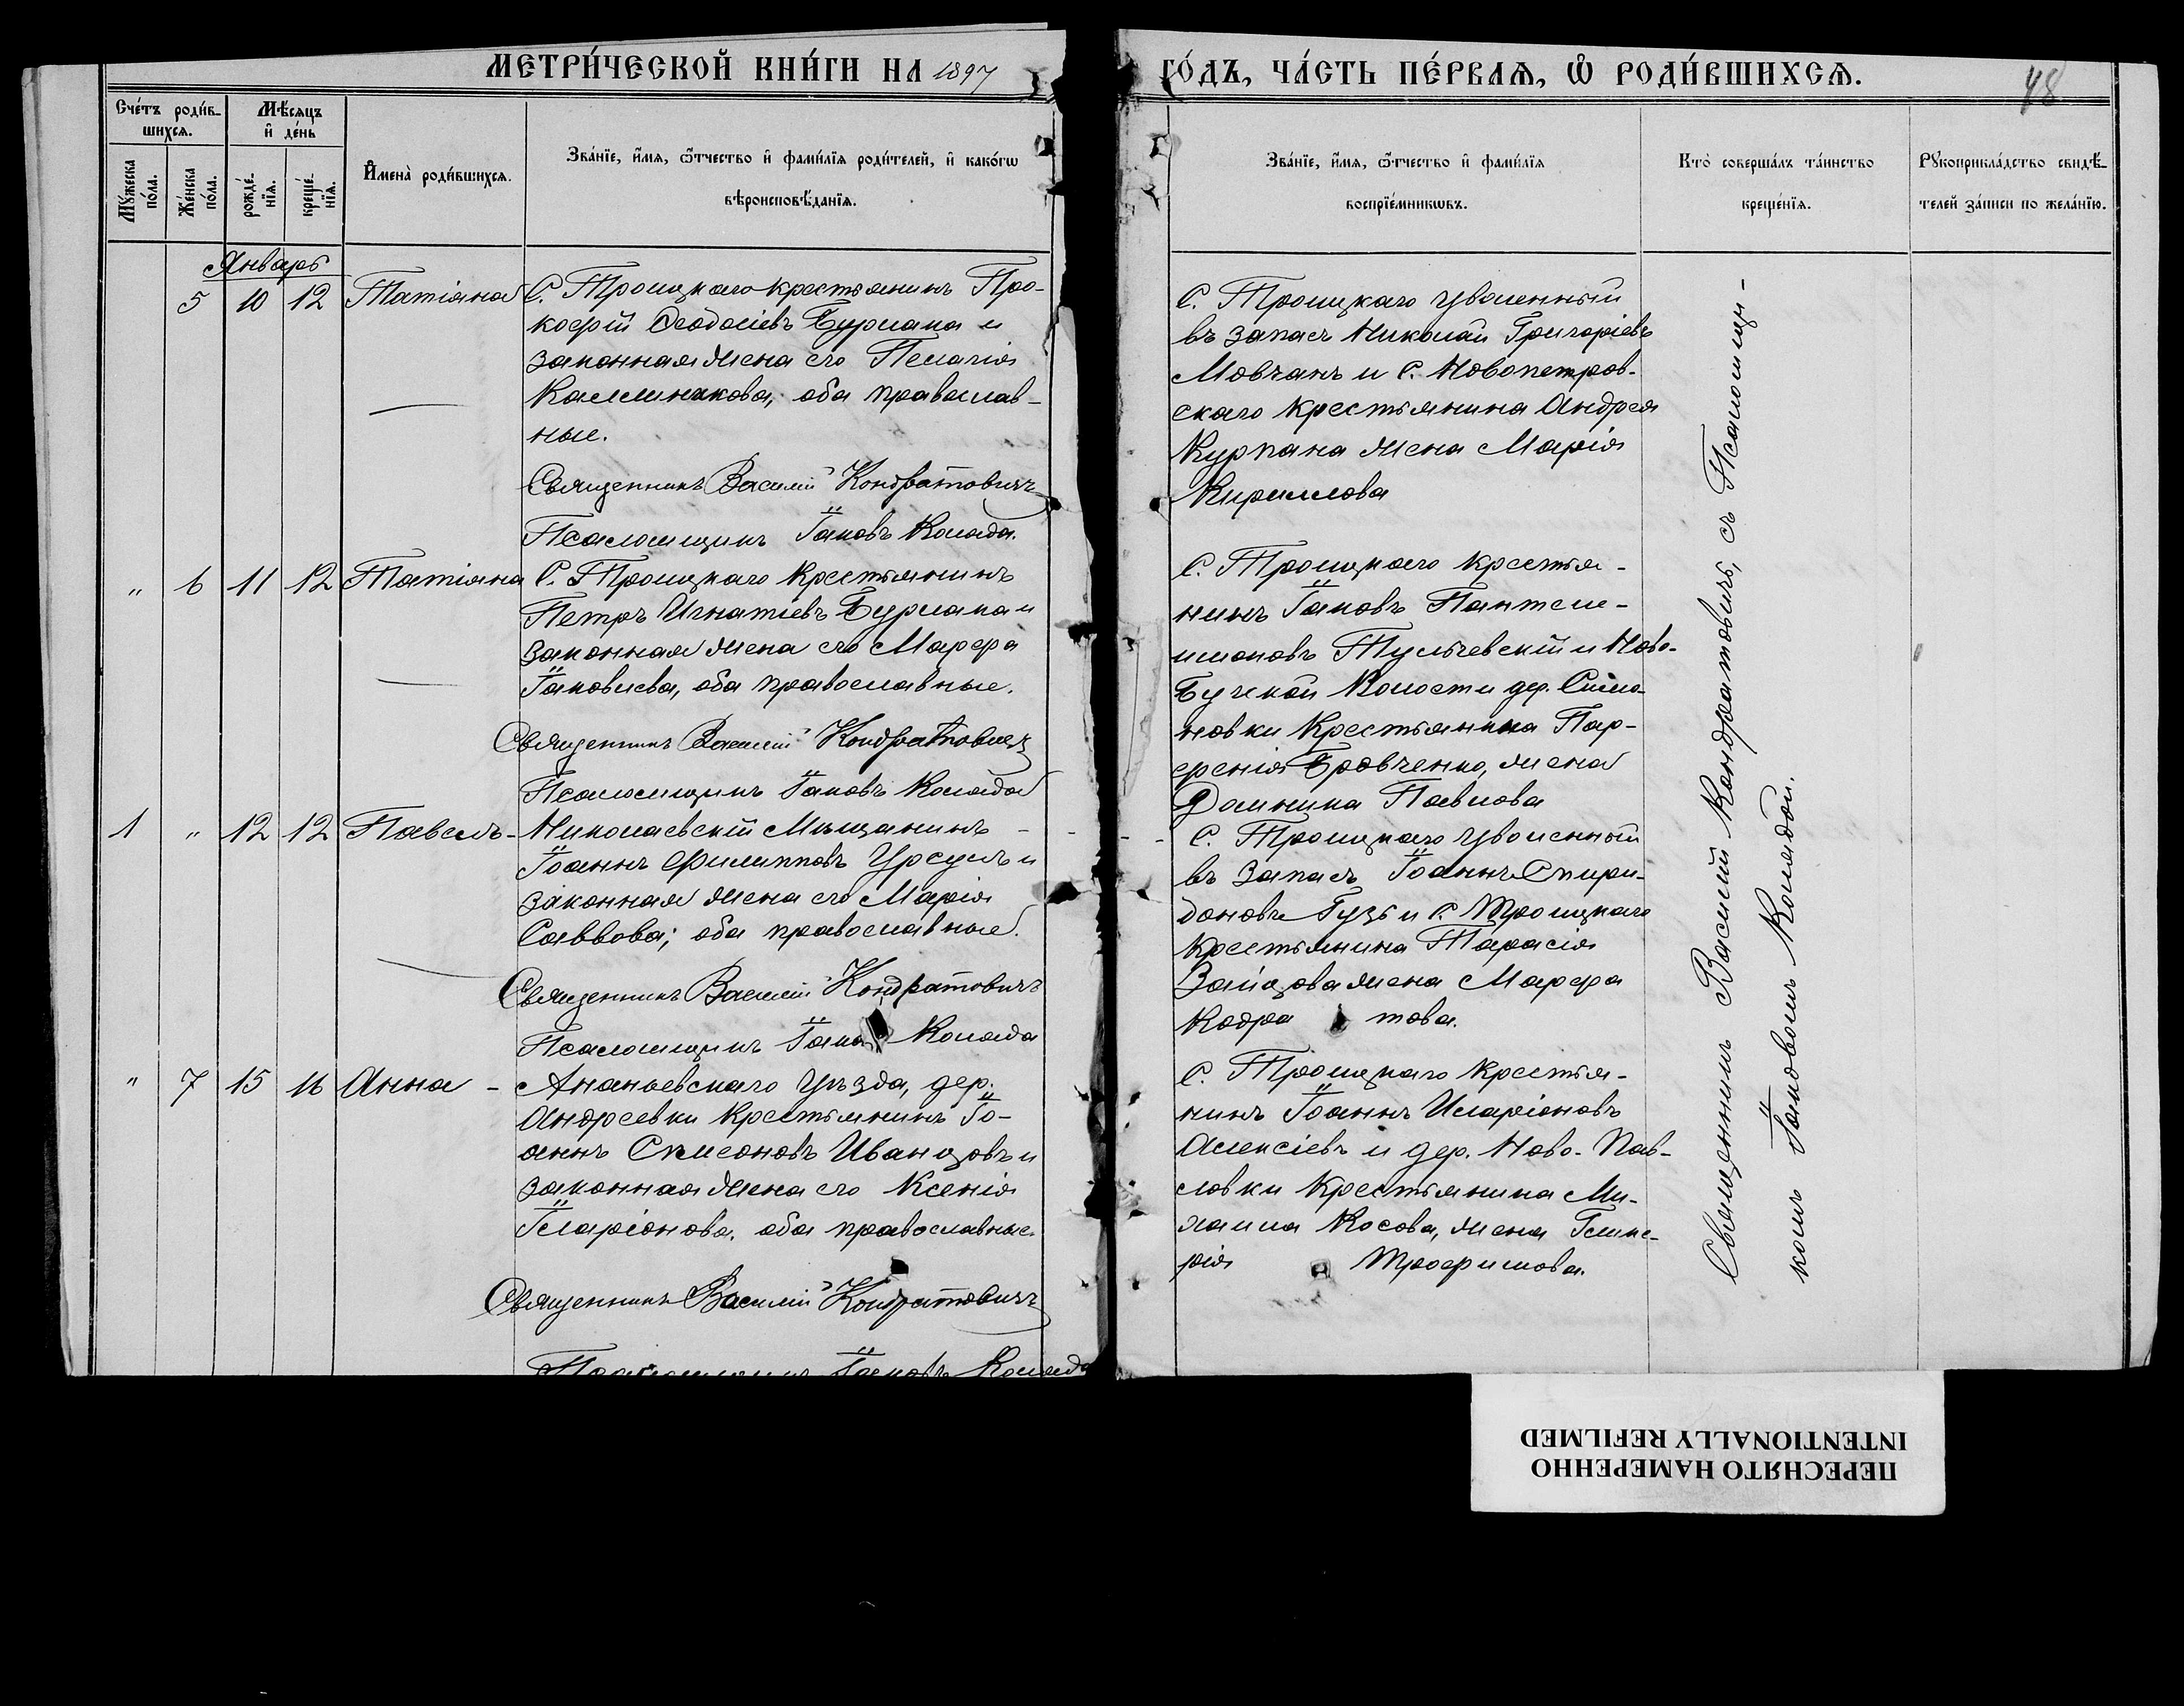 МЕТРИ́ЧЕСКОЙ КНИ́ГИ НА 1897
ГО́ДЪ, ЧА́СТЬ ПЕ́РВАЯ, Ѿ РОДИ́ВШИХСЯ.
48
Сче́тъ роди́в-
шихся.
Мѣ́сяцъ
и҆ де́нь
Му́жеска
по́ла.
Же́нска
по́ла.
рожде́-
нїя.
креще́-
нїя.
И҆мена̀ роди́вшихся.
Зва́нїе, и҆́мя, ѻ҆́тчество и҆ фами́лїя роди́телей, и҆ како́гѡ
вѣроисповѣ́данїя.
Зва́нїе, и҆́мя, ѻ҆́тчество и҆ фами́лїя
воспрїе́мникѡвъ.
Кто̀ соверша́лъ та́инство
креще́нїя.
Рукоприкла́дство свидѣ́-
телей за́писи по жела́нїю.
Январь
5 10 12 Татіана
С. Троицкаго крестьянинъ Про-
кофій Ѳеодосіевъ Бурлака и
законная жена его Пелагія
Каллиникова, оба православ-
ные.
Священникъ Василій Кондратовичъ
Псаломщикъ Іаковъ Коляда.
С. Троицкаго уволенный
въ запасъ Николай Григоріевъ
Мовчанъ и С. Новопетров-
скаго крестьянина Андрея
Курпана жена Марія
Кириллова
" 6 11 12 Татіана
С. Троицкаго крестьянинъ
Петръ Игнатіевъ Бурлака и
законная жена его Марфа
Іаковлева, оба православные.
Священникъ Василій Кондратовичъ
Псаломщикъ Іаковъ Коляда
С. Троицкаго крестья-
нинъ Іаковъ Пантеле-
имоновъ Тульчевскій и Ново-
Бугской Волости дер.
новки крестьянина Пар-
фенія Бровченко, жена
Домника Павлова
1 " 12 12 Павелъ -
Николаевскій Мѣщанинъ -
Іоаннъ Филипповъ Урсулъ и
законная жена его Марія
Саввова; оба православные.
Священникъ Василій Кондратовичъ
Псаломщикъ Іако Коляда
С. Троицкаго уволенный
въ запасъ Іоаннъ Спири-
доновъ Гузь и С. Троицкаго
крестьянина Тарасія
Зайцова жена Марфа
Кодра това.
" 7 15 16 Анна -
Ананьевскаго уѣзда, дер.
Андреевки крестьянинъ Іо-
аннъ Симеоновъ Иванцовъ и
законная жена его Ксенія
Іларіонова, оба православные.
Священникъ Василій Кондратовичъ
Псаломщикъ Іаковъ Коляда
С. Троицкаго крестья-
нинъ Іоаннъ Иларіоновъ
Алексіевъ и дер. Ново-Пав-
ловки крестьянина Ми-
хаила Косова, жена Глике-
рія Трофимова.
Священникъ Василій Кондратовичъ, съ Псаломщи-
комъ Іаковомъ Колядой.
ПЕРЕСНЯТО НАМЕРЕННО
INTENTIONALLY REFILMED